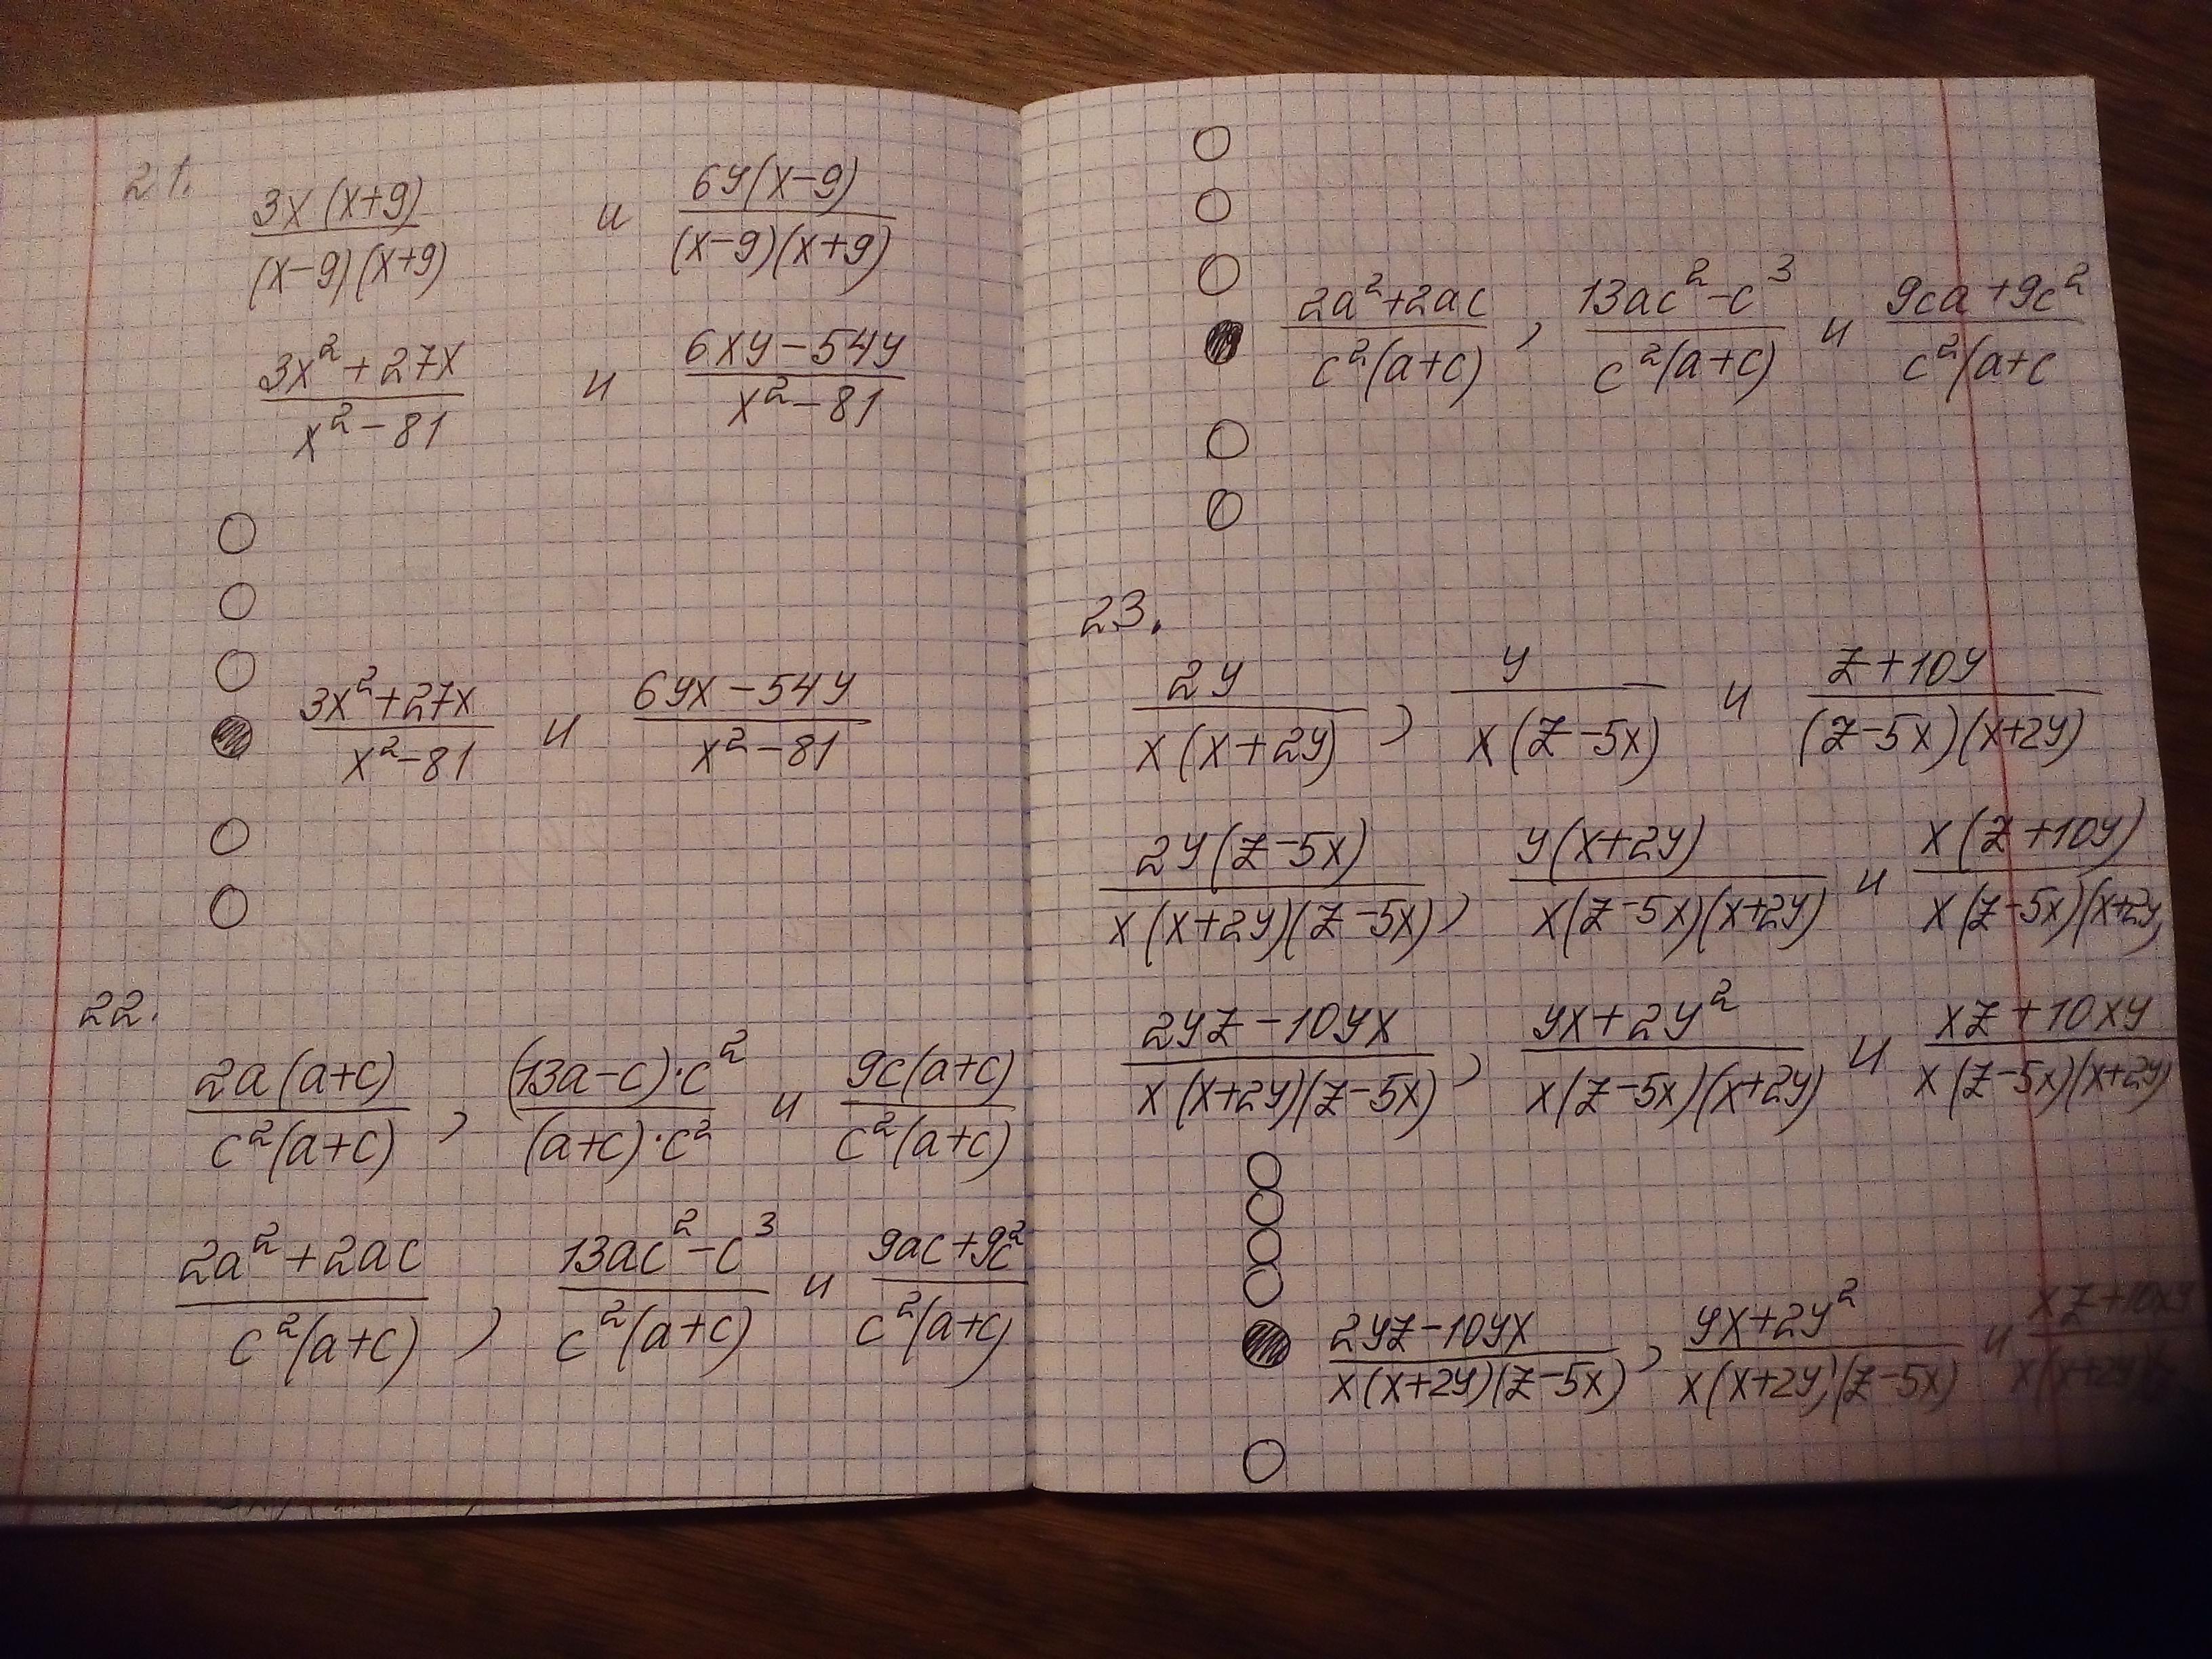 21.
3x(x+9)/(x-9)(x+9) и 6y(x-9)/(x-9)(x+9)
3x²+27x/x²-81 и 6xy-54y/x²-81
3x²+27x/x²-81 и 6yx-54y/x²-81
22.
2a(a+c)/c²(a+c) , (13a-c)·c²/(a+c)·c² и 9c(a+c)/c²(a+c)
2a²+2ac/c²(a+c) , 13ac²-c³/c²(a+c) и 9ac+9c²/c²(a+c)
2a²+2ac/c²(a+c) , 13ac²-c³/c²(a+c) и 9ca+9c²/c²(a+c
23.
2y/x(x+2y) , y/x(z-5x) и z+10y/(z-5x)(x+2y)
2y(z-5x)/x(x+2y)(z-5x) , y(x+2y)/x(z-5x)(x+2y) и x(z+10y)/x(z-5x)(x+2y)
2yz-10yx/x(x+2y)(z-5x) , yx+2y²/x(z-5x)(x+2y) и xz+10xy/x(z-5x)(x+2y)
2yz-10yx/x(x+2y)(z-5x) , yx+2y²/x(x+2y)(z-5x) и xz+10xy/x(x+2y)